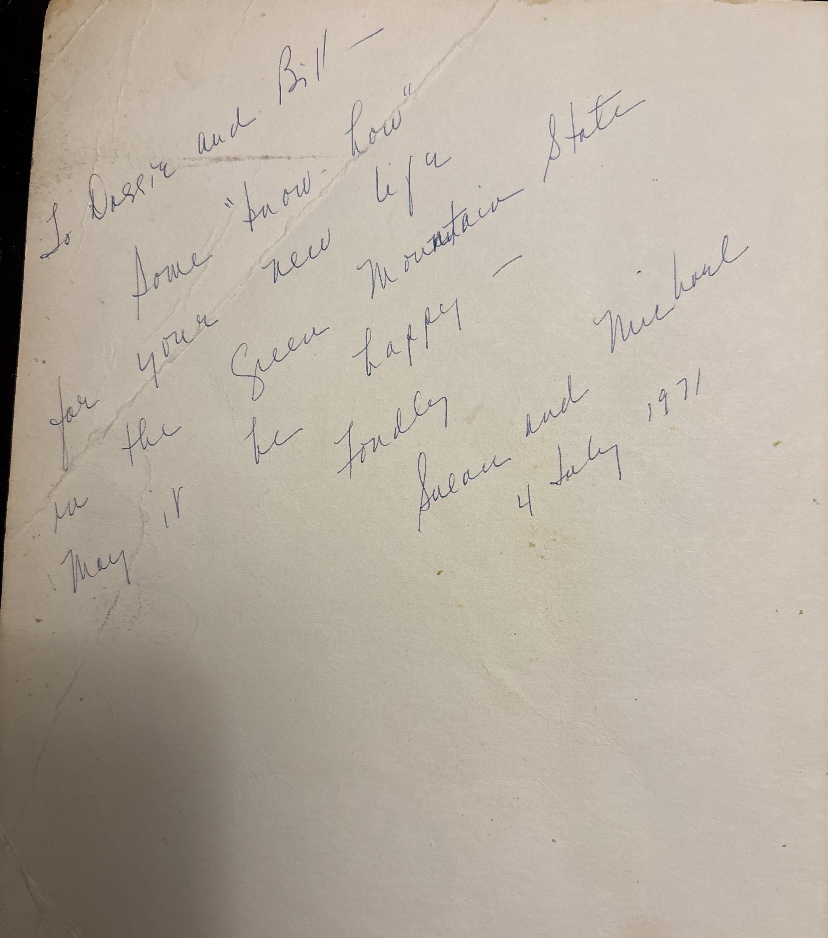 To Dossie and Bill —
Some "know-how"
for your new life
in the Green Mountain State
May it be happy —
Fondly
Susan and Michael
4 July 1971